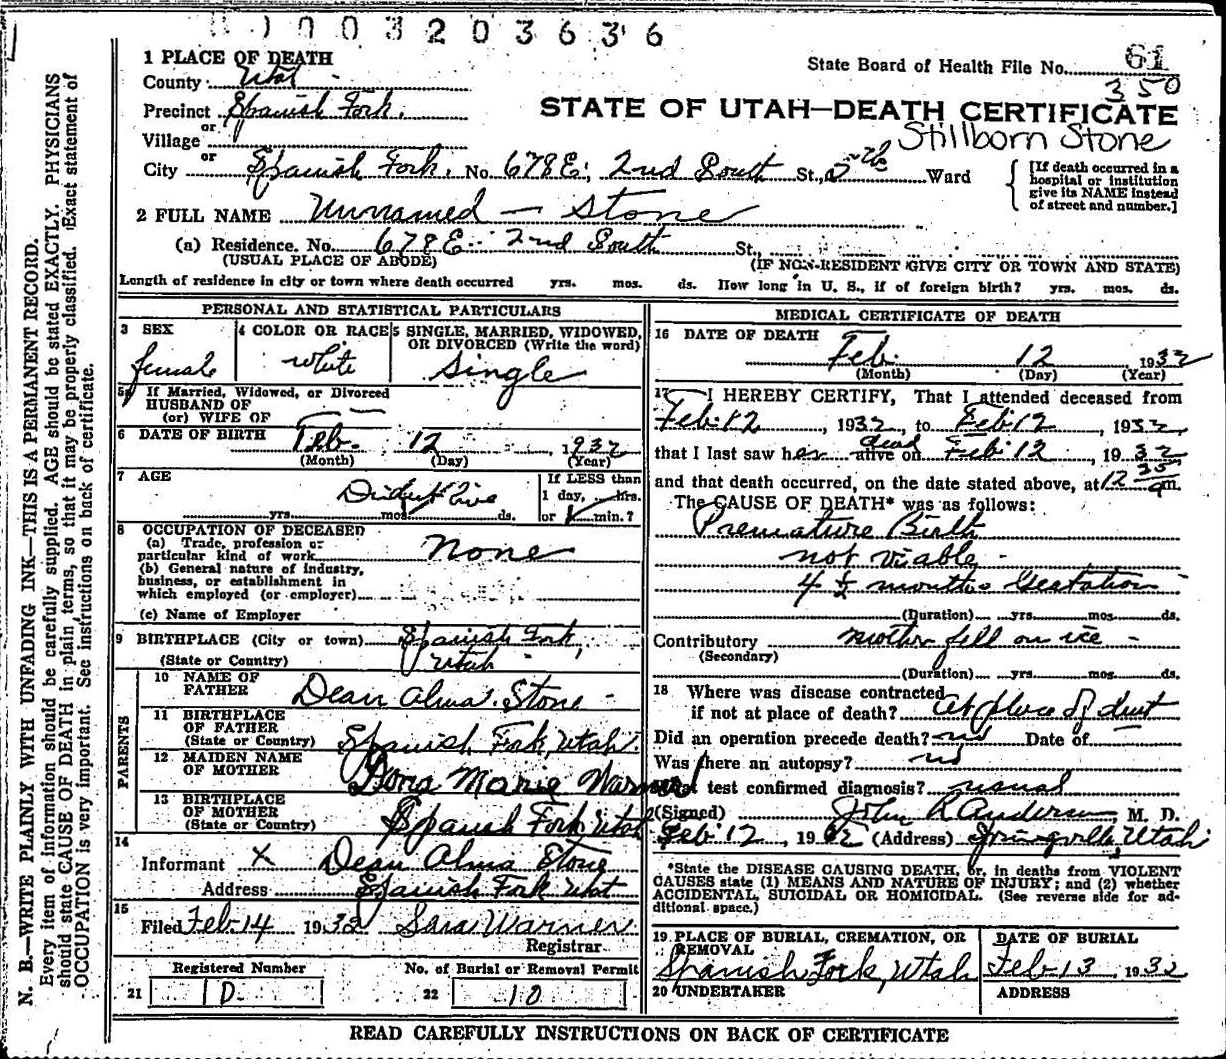 003203636
1 PLACE OF DEATH
State Board of Health File No. 61
County Utah
350
Precinct Spanish Fork.
STATE OF UTAH—DEATH CERTIFICATE
or
Village
Stillborn Stone
or
City Spanish Fork. No. 678 E. 2nd South St., 5th Ward
[If death occurred in a hospital or institution give its NAME instead of street and number.]
2 FULL NAME Unnamed — Stone
(a) Residence. No. 678 E. 2nd South St.
(USUAL PLACE OF ABODE) (IF NON-RESIDENT GIVE CITY OR TOWN AND STATE)
Length of residence in city or town where death occurred yrs. mos. ds. How long in U. S., if of foreign birth? yrs. mos. ds.
PERSONAL AND STATISTICAL PARTICULARS
3 SEX
female
4 COLOR OR RACE
white
5 SINGLE, MARRIED, WIDOWED, OR DIVORCED (Write the word)
Single
5a If Married, Widowed, or Divorced
HUSBAND OF
(or) WIFE OF
6 DATE OF BIRTH Feb. 12 1932
(Month) (Day) (Year)
7 AGE
Didn't Live
yrs. mos. ds.
If LESS than
1 day, hrs.
or min.?
8 OCCUPATION OF DECEASED
(a) Trade, profession or
particular kind of work None
(b) General nature of industry,
business, or establishment in
which employed (or employer)
(c) Name of Employer
9 BIRTHPLACE (City or town) Spanish Fork,
(State or Country) Utah
PARENTS
10 NAME OF
FATHER Dean Alma Stone
11 BIRTHPLACE
OF FATHER
(State or Country) Spanish Fork, Utah.
12 MAIDEN NAME
OF MOTHER Dona Marie Warner
13 BIRTHPLACE
OF MOTHER
(State or Country) Spanish Fork Utah
14
Informant X Dean Alma Stone
Address Spanish Fork Utat
15
Filed Feb-14 1932 Sara Warner
Registrar.
Registered Number No. of Burial or Removal Permit
21 1D 22 10
MEDICAL CERTIFICATE OF DEATH
16 DATE OF DEATH
Feb. 12 1932
(Month) (Day) (Year)
17 I HEREBY CERTIFY, That I attended deceased from
Feb. 12, 1932, to Feb. 12, 1932
dead
that I last saw her alive on Feb. 12, 1932
and that death occurred, on the date stated above, at 12 35 am.
The CAUSE OF DEATH* was as follows:
Premature Birth
not viable -
4 1/2 months Gestation
(Duration) yrs. mos. ds.
Contributory mother fell on ice -
(Secondary)
(Duration) yrs. mos. ds.
18 Where was disease contracted
if not at place of death? At place of
Did an operation precede death? no Date of —
Was there an autopsy? no
What test confirmed diagnosis? usual
(Signed) John R Anderson, M. D.
Feb. 12, 1932 (Address) Springville, Utah
*State the DISEASE CAUSING DEATH, or, in deaths from VIOLENT
CAUSES state (1) MEANS AND NATURE OF INJURY; and (2) whether
ACCIDENTAL, SUICIDAL OR HOMICIDAL. (See reverse side for ad-
ditional space.)
19 PLACE OF BURIAL, CREMATION, OR
REMOVAL
Spanish Fork, Utah
DATE OF BURIAL
Feb-13 1932
20 UNDERTAKER ADDRESS
READ CAREFULLY INSTRUCTIONS ON BACK OF CERTIFICATE
N. B.—WRITE PLAINLY WITH UNFADING INK—THIS IS A PERMANENT RECORD.
Every item of information should be carefully supplied. AGE should be stated EXACTLY. PHYSICIANS
should state CAUSE OF DEATH in plain terms, so that it may be properly classified. Exact statement of
OCCUPATION is very important. See instructions on back of certificate.